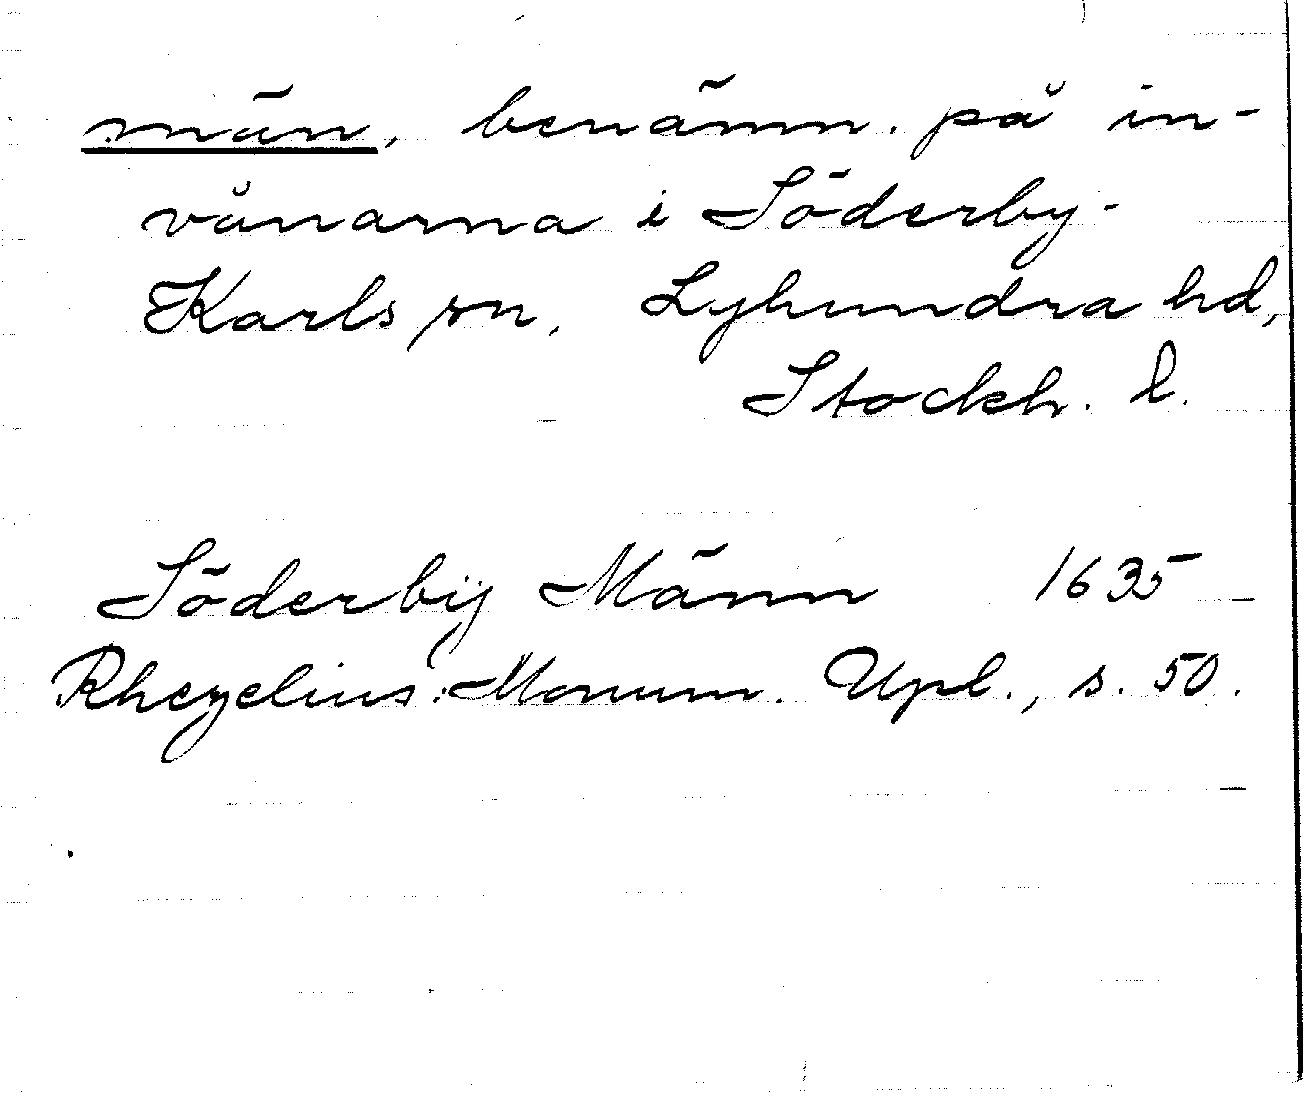 män, benämn. på in-
vånarna i Söderby-
Karls sn, Lyhundra hd,
Stockh. l.
Söderbÿ Männ 1635
Rhezelius: Monum. Upl., s. 50.